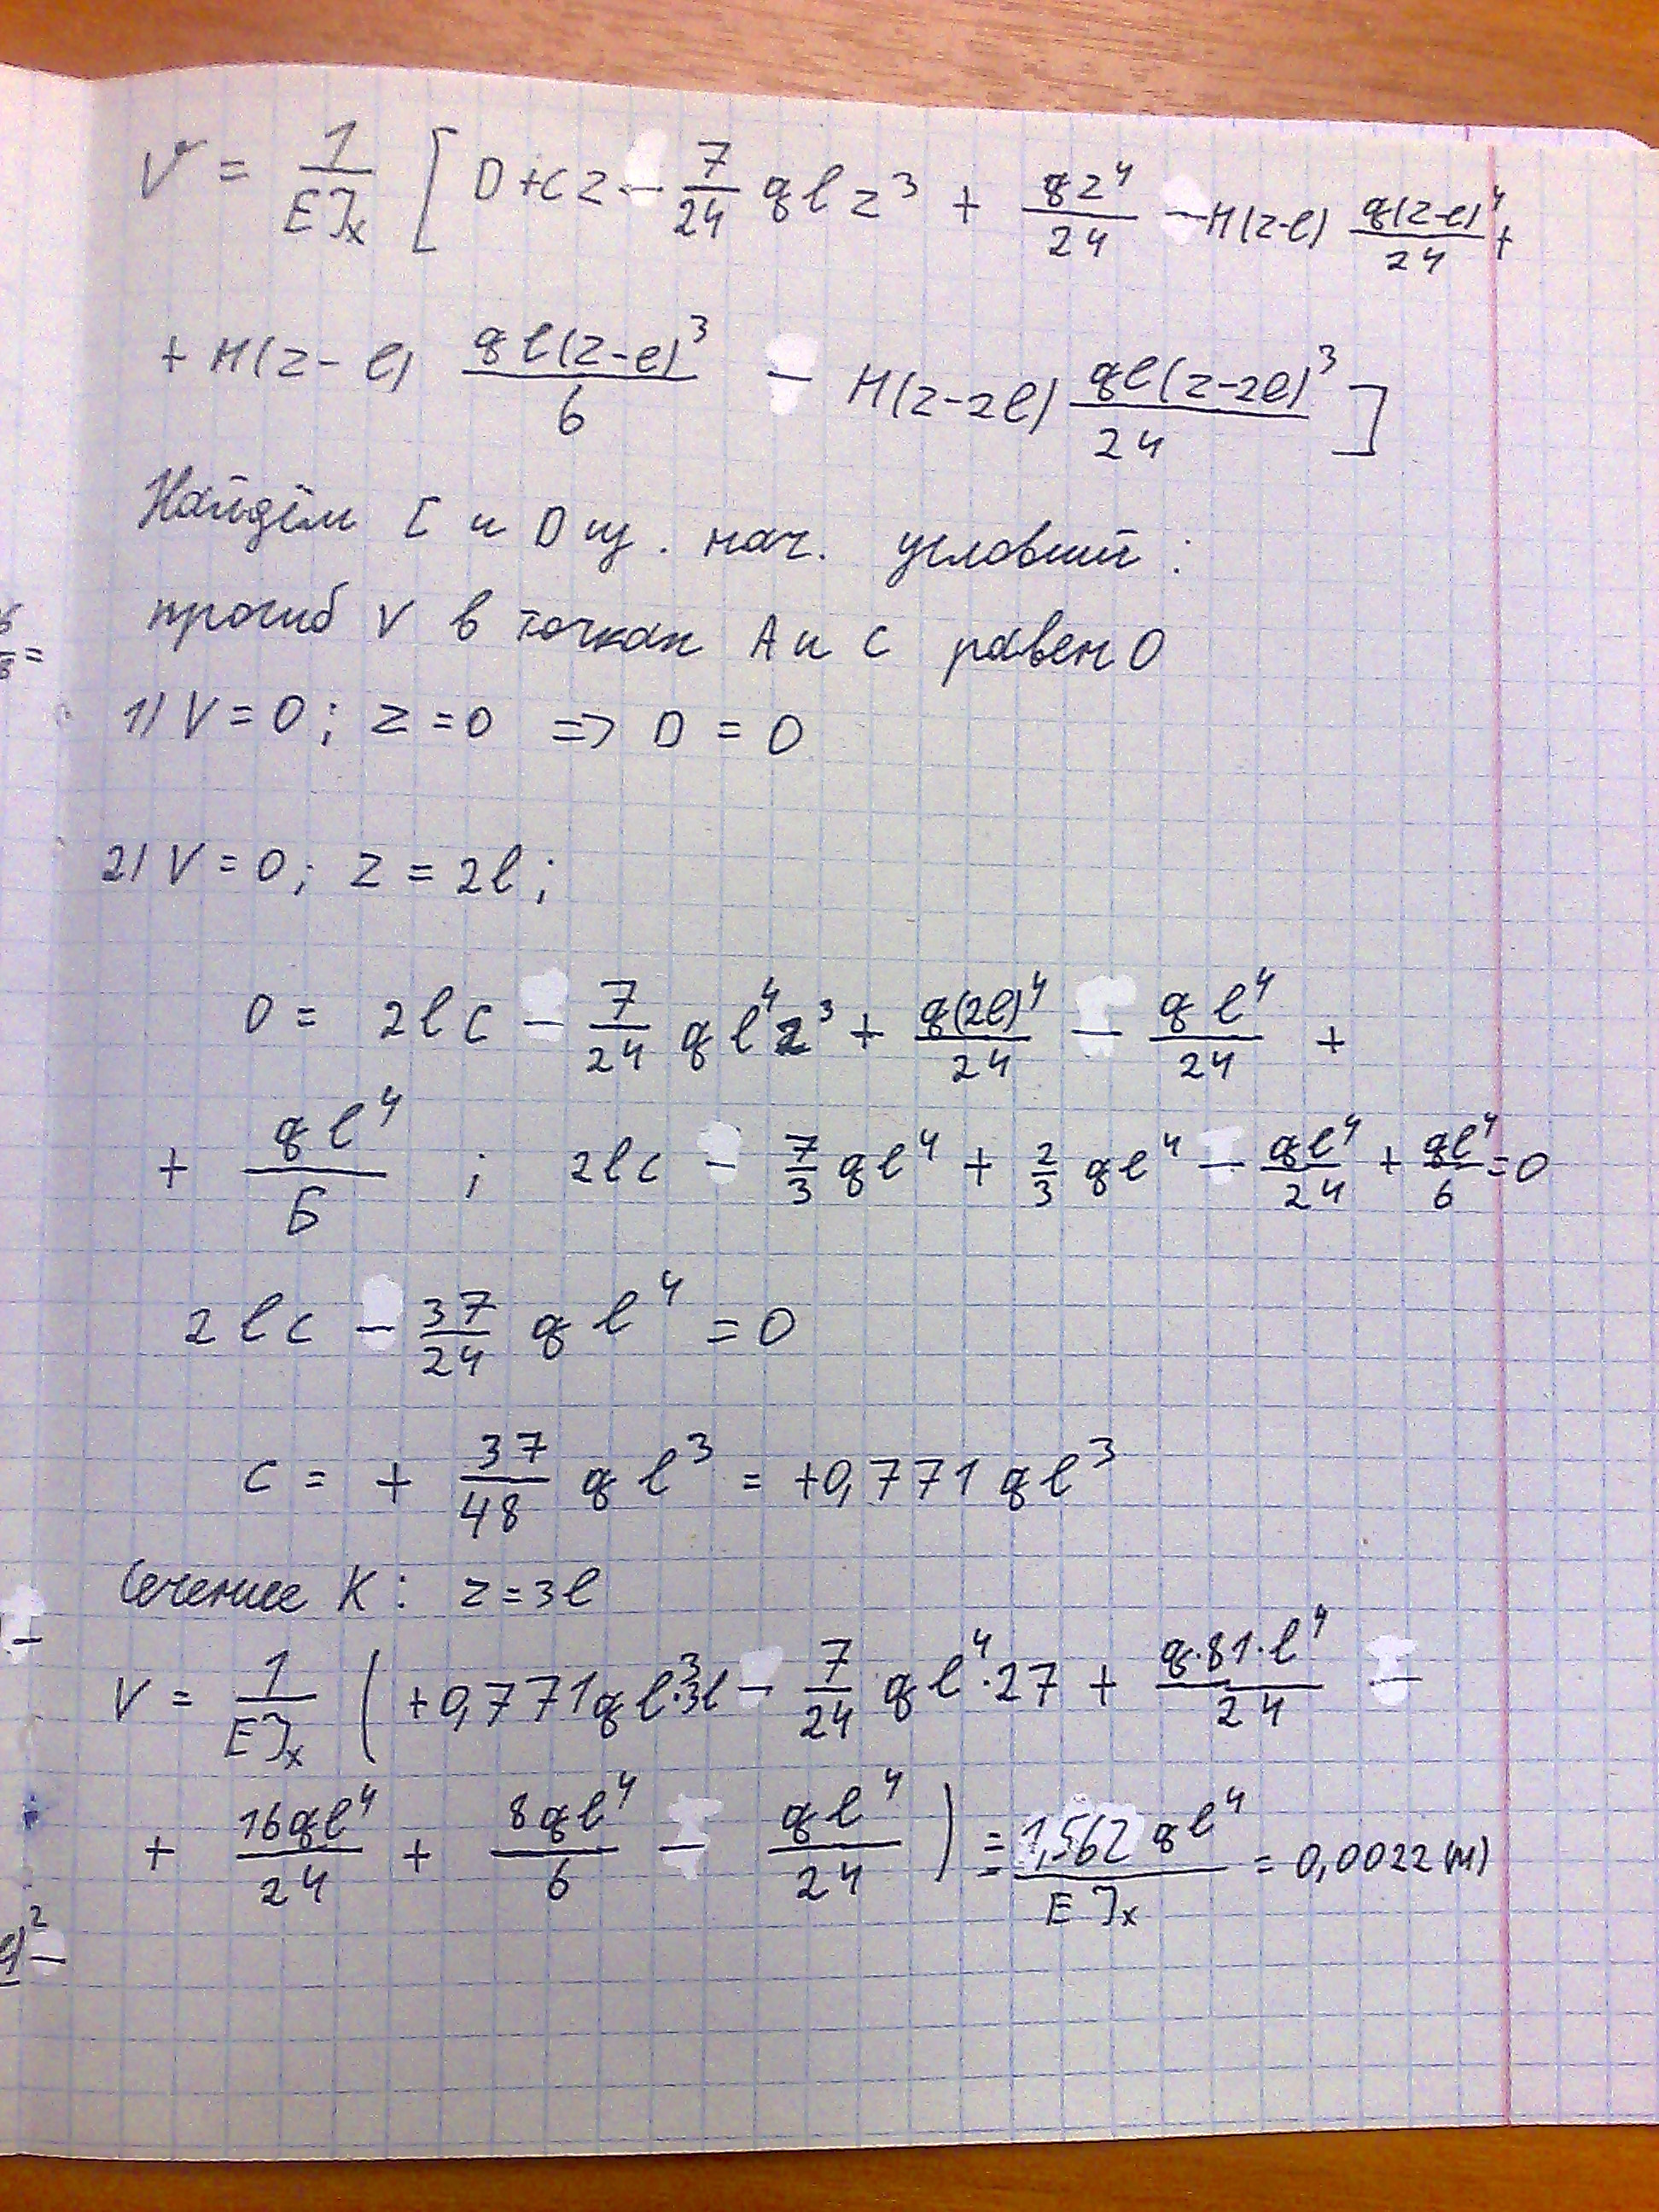 V = 1/EJx [ D+cz - 7/24 qlz³ + qz⁴/24 - H(z-l) q(z-l)⁴/24 +
+ H(z-l) ql(z-l)³/6 - H(z-2l) ql(z-2l)³/24 ]
Найдём C и D из нач. условий:
прогиб V в точках A и C равен 0
1) V=0; z=0 => D = 0
2) V=0; z=2l;
0 = 2lc - 7/24 ql⁴2³ + q(2l)⁴/24 - ql⁴/24 +
+ ql⁴/6 ; 2lc - 7/3 ql⁴ + 2/3 ql⁴ - ql⁴/24 + ql⁴/6 =0
2lc - 37/24 ql⁴ = 0
c = + 37/48 ql³ = +0,771 ql³
Сечение K: z=3l
V = 1/EJx ( +0,771ql³·3l - 7/24 ql⁴·27 + q·81·l⁴/24 -
+ 16ql⁴/24 + 8ql⁴/6 - ql⁴/24 ) = 1,562 ql⁴/EJx = 0,0022(м)